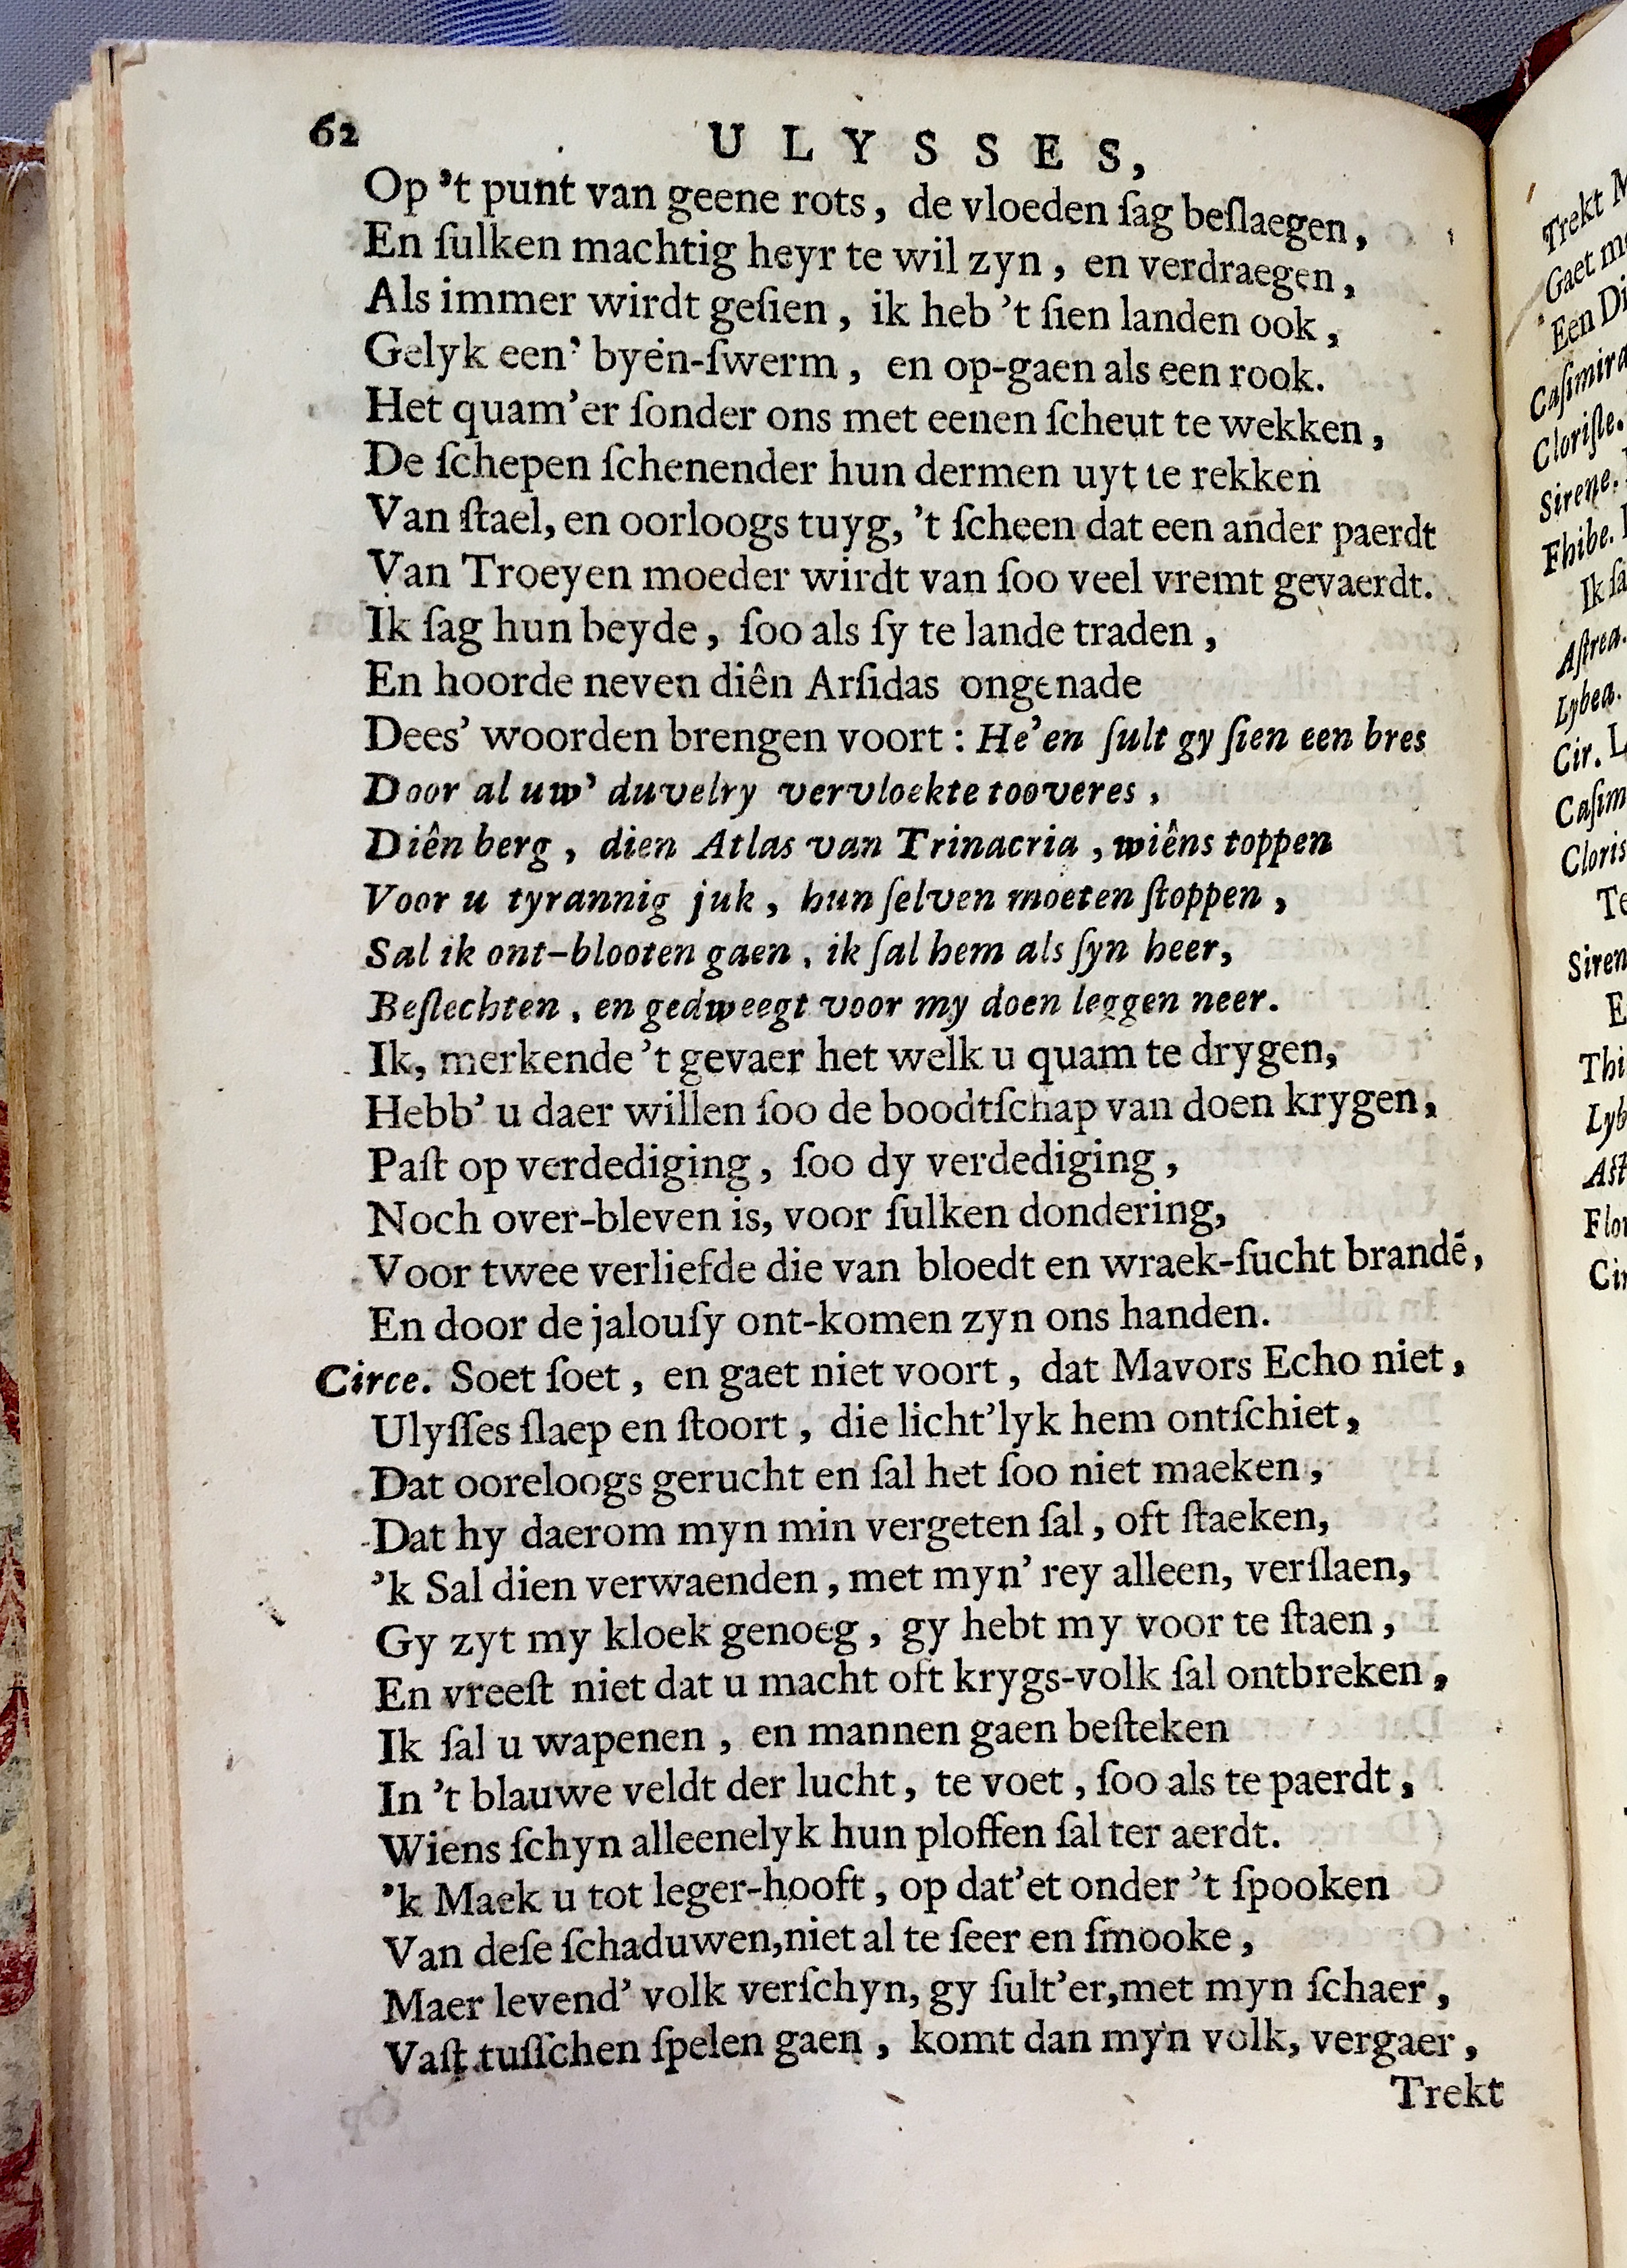 62 ULYSSES,
Op 't punt van geene rots, de vloeden ſag beſlaegen,
En ſulken machtig heyr te wil zyn, en verdraegen,
Als immer wirdt geſien, ik heb 't ſien landen ook,
Gelyk een' byën-ſwerm, en op-gaen als een rook.
Het quam'er ſonder ons met eenen ſcheut te wekken,
De ſchepen ſchenender hun dermen uyt te rekken
Van ſtael, en oorloogs tuyg, 't ſcheen dat een ander paerdt
Van Troeyen moeder wirdt van ſoo veel vremt gevaerdt.
Ik ſag hun beyde, ſoo als ſy te lande traden,
En hoorde neven diên Arſidas ongenade
Dees' woorden brengen voort: He'en ſult gy ſien een bres
Door al uw' duvelry vervloekte tooveres,
Diên berg, dien Atlas van Trinacria, wiêns toppen
Voor u tyrannig juk, hun ſelven moeten ſtoppen,
Sal ik ont-blooten gaen, ik ſal hem als ſyn heer,
Beſlechten, en gedweegt voor my doen leggen neer.
Ik, merkende 't gevaer het welk u quam te drygen,
Hebb' u daer willen ſoo de boodtſchap van doen krygen,
Paſt op verdediging, ſoo dy verdediging,
Noch over-bleven is, voor ſulken dondering,
Voor twee verliefde die van bloedt en wraek-ſucht brandē,
En door de jalouſy ont-komen zyn ons handen.
Circe. Soet ſoet, en gaet niet voort, dat Mavors Echo niet,
Ulyſſes ſlaep en ſtoort, die licht'lyk hem ontſchiet,
Dat ooreloogs gerucht en ſal het ſoo niet maeken,
Dat hy daerom myn min vergeten ſal, oft ſtaeken,
'k Sal dien verwaenden, met myn' rey alleen, verſlaen,
Gy zyt my kloek genoeg, gy hebt my voor te ſtaen,
En vreeſt niet dat u macht oft krygs-volk ſal ontbreken,
Ik ſal u wapenen, en mannen gaen beſteken
In 't blauwe veldt der lucht, te voet, ſoo als te paerdt,
Wiens ſchyn alleenelyk hun ploffen ſal ter aerdt.
'k Maek u tot leger-hooft, op dat'et onder 't ſpooken
Van deſe ſchaduwen, niet al te ſeer en ſmooke,
Maer levend' volk verſchyn, gy ſult'er, met myn ſchaer,
Vaſt tuſſchen ſpelen gaen, komt dan myn volk, vergaer,
Trekt
Trekt
Gaet
Een
Cloriſte.
Sirene.
Fhibe.
Ik
Aſtrea.
Lybea.
Cir.